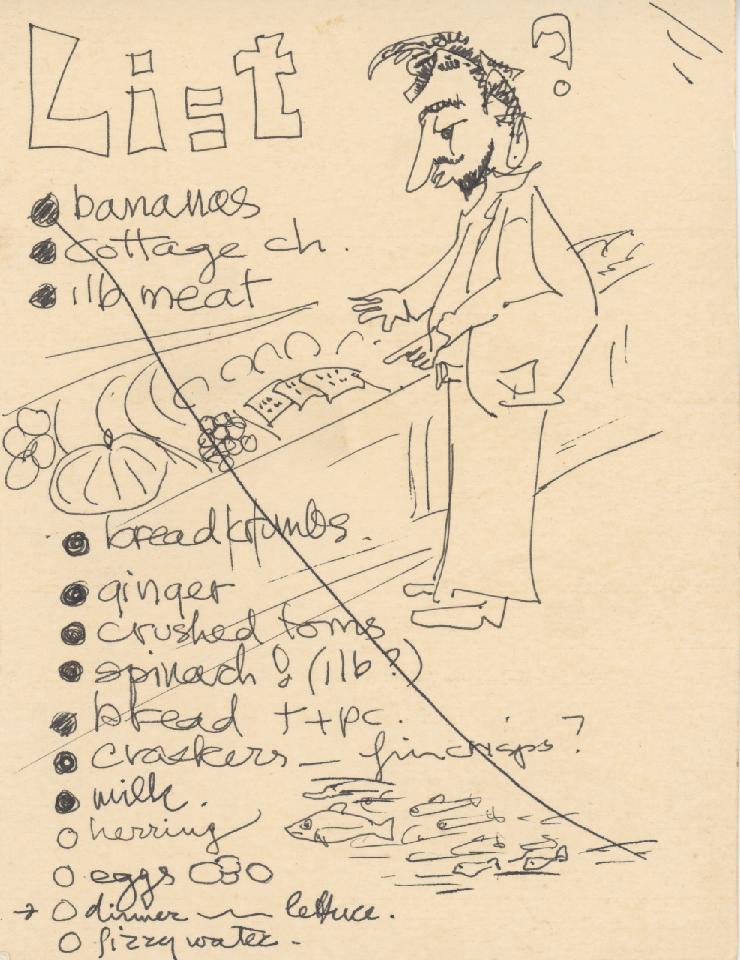 List
?
bananas
cottage ch.
1lb meat
bread krumbs.
ginger
crushed toms
spinach (1lb?)
bread t+pc.
craskers — fincrisps?
milk.
herring
eggs
→ dinner — lettuce.
fizzy water.